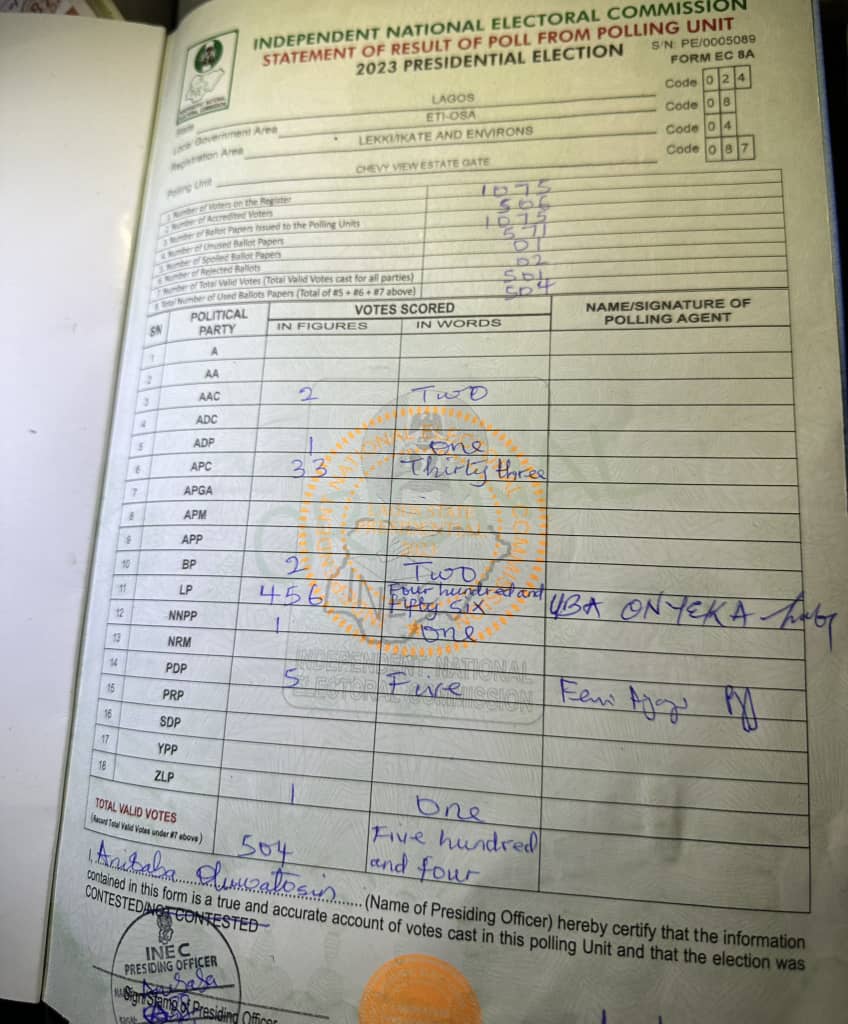 INDEPENDENT NATIONAL ELECTORAL COMMISSION
STATEMENT OF RESULT OF POLL FROM POLLING UNIT
2023 PRESIDENTIAL ELECTION
S/N: PE/0005089
FORM EC 8A
State LAGOS Code 0 2 4
Local Government Area ETI-OSA Code 0 8
Registration Area LEKKI/IKATE AND ENVIRONS Code 0 4
Polling Unit CHEVY VIEW ESTATE GATE Code 0 8 7
1. Number of Voters on the Register 1075
2. Number of Accredited Voters 506
3. Number of Ballot Papers Issued to the Polling Units 1075
4. Number of Unused Ballot Papers 571
5. Number of Spoiled Ballot Papers 01
6. Number of Rejected Ballots 02
7. Number of Total Valid Votes (Total Valid Votes cast for all parties) 501
8. Total Number of Used Ballots Papers (Total of #5 + #6 + #7 above) 504
SN POLITICAL PARTY VOTES SCORED NAME/SIGNATURE OF POLLING AGENT
IN FIGURES IN WORDS
1 A
2 AA
3 AAC 2 Two
4 ADC
5 ADP 1 one
6 APC 33 Thirty three
7 APGA
8 APM
9 APP
10 BP 2 Two
11 LP 456 Four hundred and Fifty six UBA ONYEKA
12 NNPP 1 one
13 NRM
14 PDP 5 Five Femi Ajayi
15 PRP
16 SDP
17 YPP
18 ZLP 1 one
TOTAL VALID VOTES
(Record Total Valid Votes under #7 above) 504 Five hundred and four
I, Anibaba Oluwatosin (Name of Presiding Officer) hereby certify that the information
contained in this form is a true and accurate account of votes cast in this polling Unit and that the election was
CONTESTED/NOT CONTESTED
INEC
PRESIDING OFFICER
Sign/Stamp of Presiding Officer